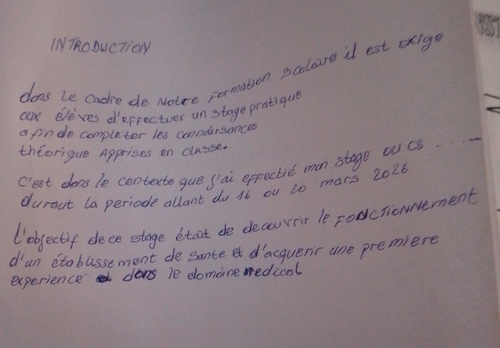 INTRODUCTION
dans le cadre de Notre Formation Scolaire il est exige
aux élèves d'effectuer un stage pratique
afin de completer les connaissances
théorique Apprises en classe.
C'est dans le contexte que j'ai effectié mon stage au CS - - - -
durant la periode allant du 16 au 20 mars 2026
L'objectif de ce stage était de decouvrir le FONCTIONNEMENT
d'un établissement de sante et d'acquerir une première
experience dans le domaine medical